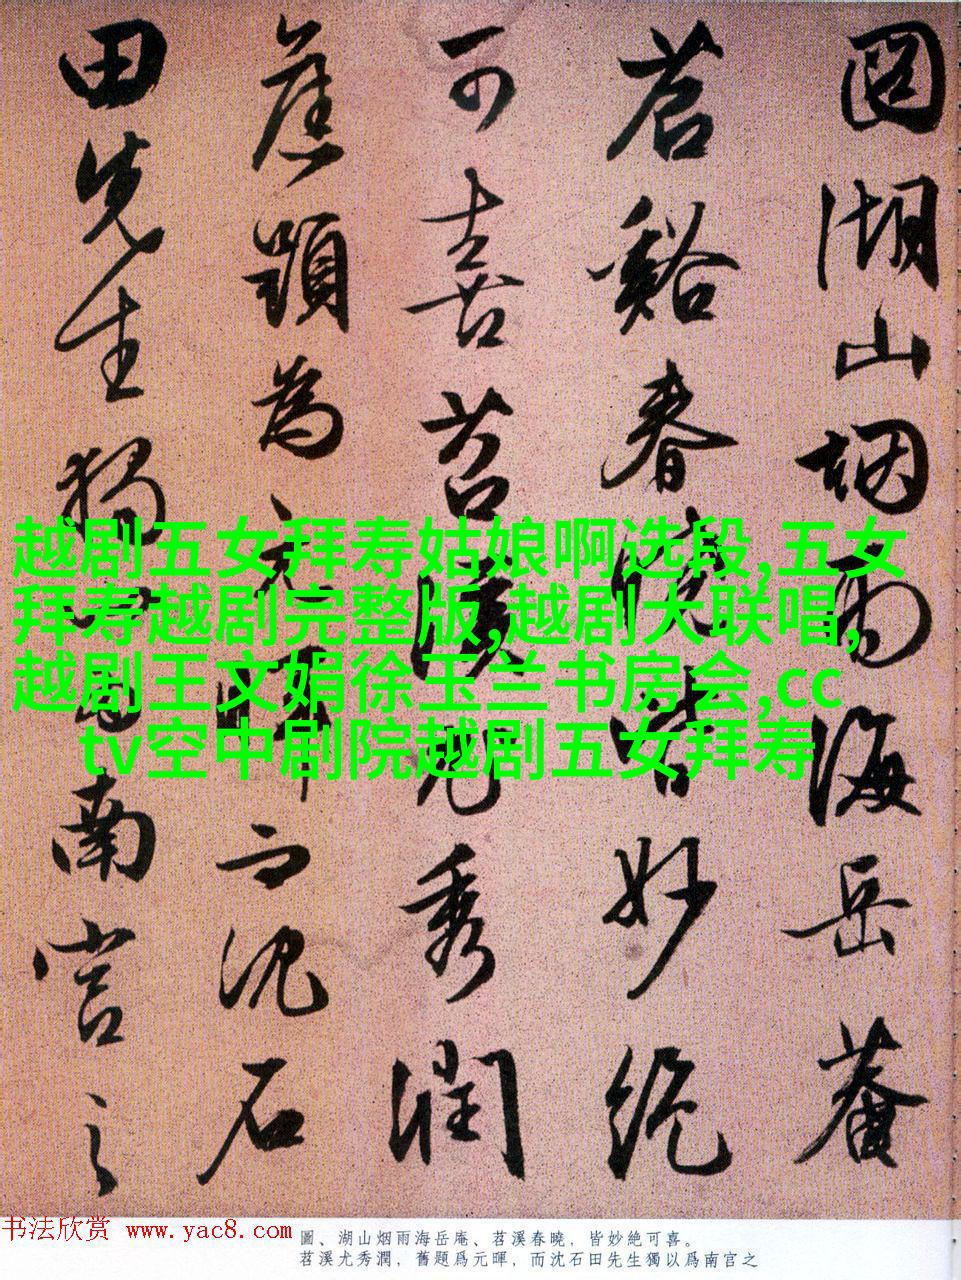 圖湖山烟雨海岳菴
苕谿春曉皆妙絶
可喜苕溪尤秀潤
舊題為元暉而沈石
田先生獨以為南宮之
越剧五女拜寿姑娘啊选段,五女
拜寿越剧完整版,越剧大联唱,
越剧王文娟徐玉兰书房会,cc
tv空中剧院越剧五女拜寿
书法欣赏 www.yac8.com
圖、湖山烟雨海岳庵、苕溪春曉，皆妙絶可喜。
苕溪尤秀潤，舊題爲元暉，而沈石田先生獨以爲南宫之